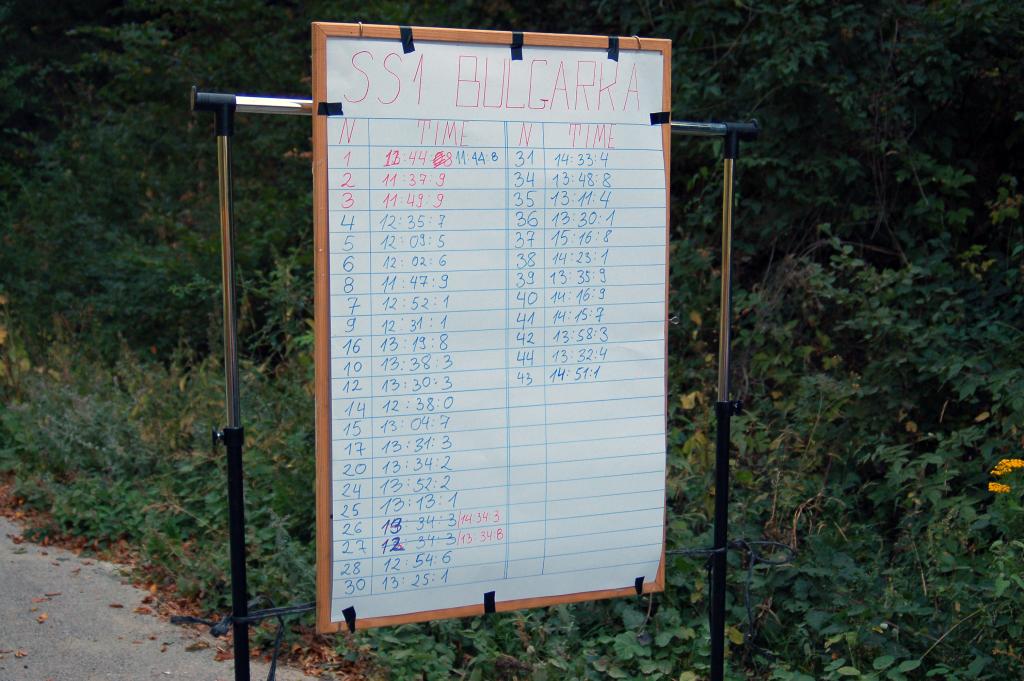 SS1 BULGARKA
N TIME N TIME
1 11:44:8 11:44:8 31 14:33:4
2 11:37:9 34 13:48:8
3 11:49:9 35 13:11:4
4 12:35:7 36 13:30:1
5 12:09:5 37 15:16:8
6 12:02:6 38 14:23:1
8 11:47:9 39 13:35:9
7 12:52:1 40 14:16:9
9 12:31:1 41 14:15:7
16 13:19:8 42 13:58:3
10 13:38:3 44 13:32:4
12 13:30:3 43 14:51:1
14 12:38:0
15 13:04:7
17 13:31:3
20 13:34:2
24 13:52:2
25 13:13:1
26 13:34:3/14:34:3
27 12:34:3/13:34:8
28 12:54:6
30 13:25:1